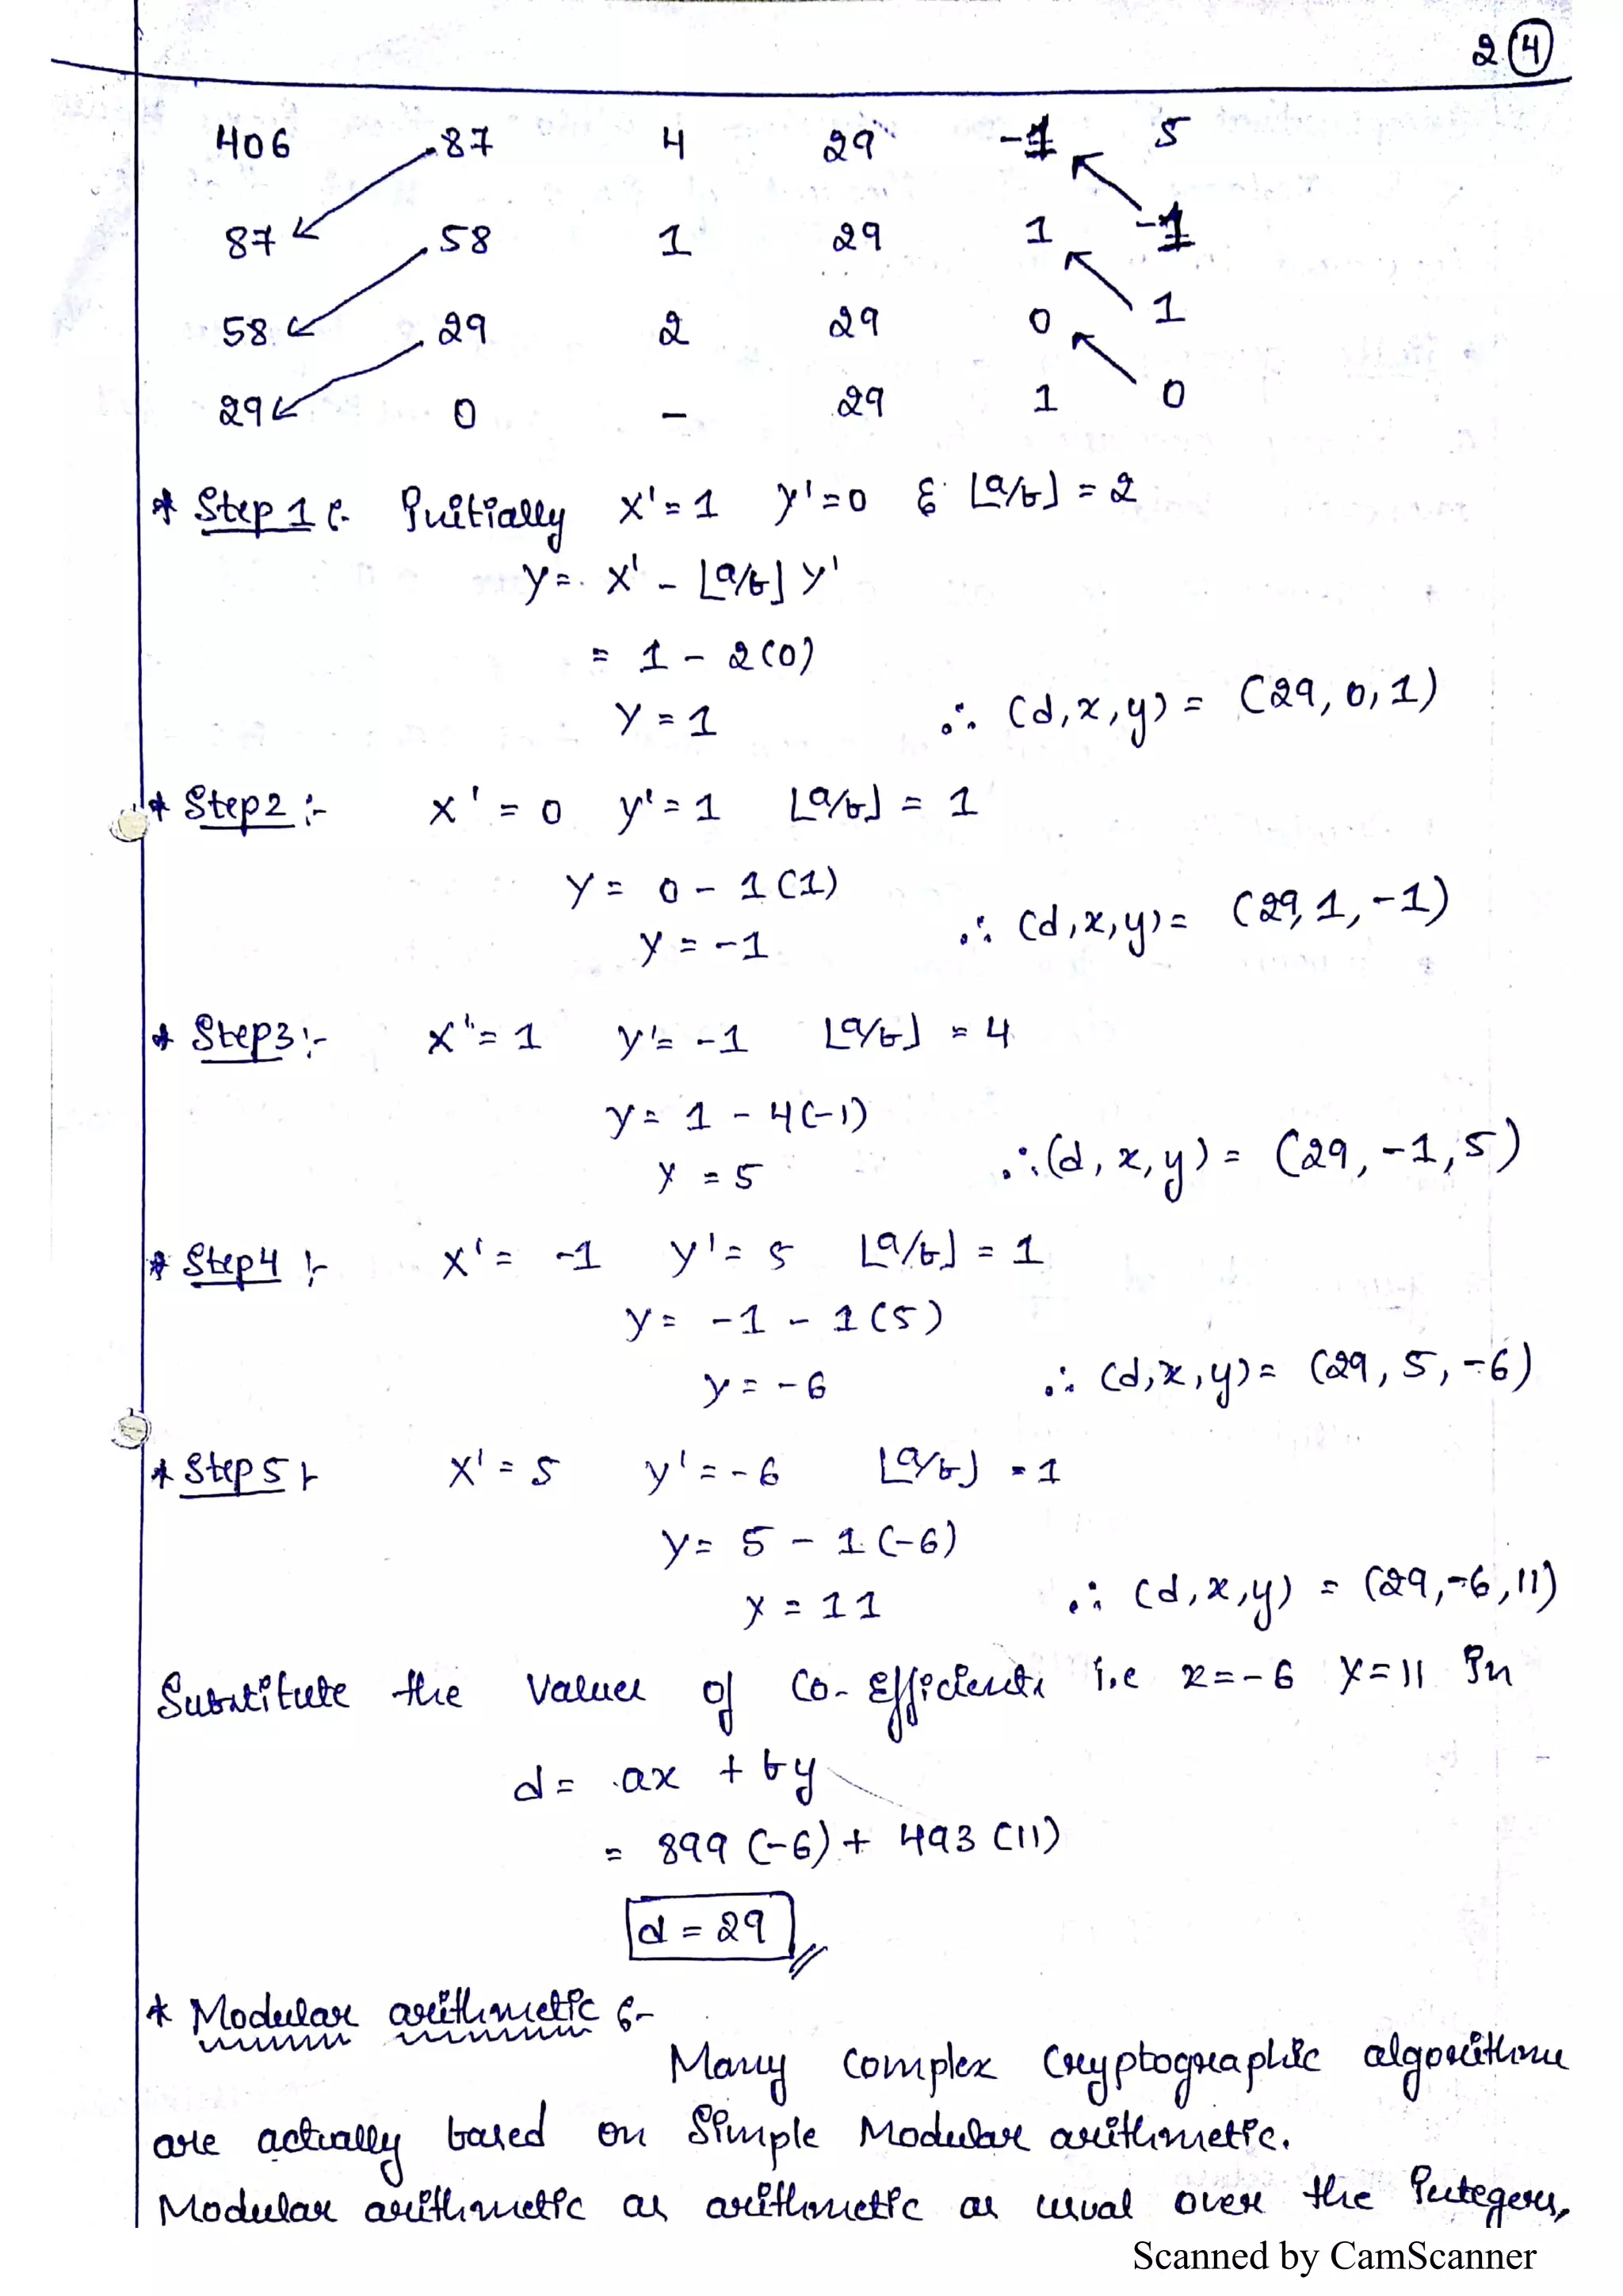 2 4
406 87 4 29 -1 5
87 58 1 29 1 -1
58 29 2 29 0 1
29 0 - 29 1 0
* Step 1 :- Initially x' = 1 y' = 0 & ⌊a/b⌋ = 2
y = x' - ⌊a/b⌋ y'
= 1 - 2(0)
y = 1 ∴ (d, x, y) = (29, 0, 1)
* Step 2 :- x' = 0 y' = 1 ⌊a/b⌋ = 1
y = 0 - 1(1)
y = -1 ∴ (d, x, y) = (29, 1, -1)
* Step 3 :- x' = 1 y' = -1 ⌊a/b⌋ = 4
y = 1 - 4(-1)
y = 5 ∴ (d, x, y) = (29, -1, 5)
* Step 4 :- x' = -1 y' = 5 ⌊a/b⌋ = 1
y = -1 - 1(5)
y = -6 ∴ (d, x, y) = (29, 5, -6)
* Step 5 :- x' = 5 y' = -6 ⌊a/b⌋ = 1
y = 5 - 1(-6)
y = 11 ∴ (d, x, y) = (29, -6, 11)
Substitute the values of Co-Efficients i.e x = -6 y = 11 in
d = ax + by
= 899 (-6) + 493 (11)
d = 29
* Modular arithmetic :-
Many complex Cryptographic algorithms
are actually based on Simple Modular arithmetic.
Modular arithmetic as arithmetic as usual over the integers,
Scanned by CamScanner